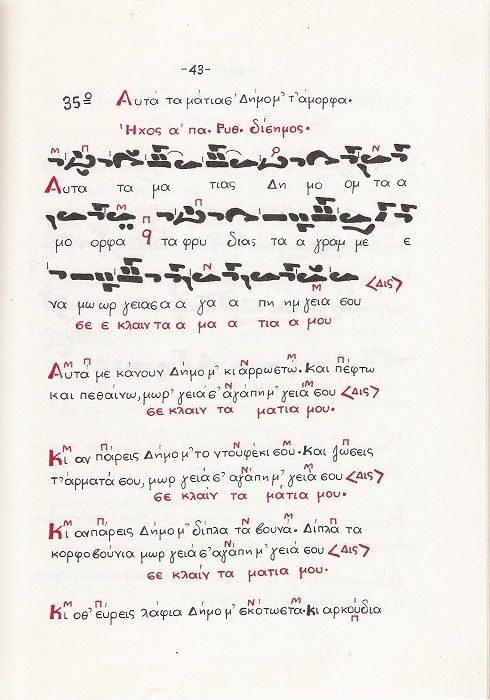 -43-
35º Αυτά τα μάτιασ' Δήμο μ' τ' άμορφα.
Ήχος α' πα. Ρυθ. δίσημος.
Μ Π Ν
Αυτα τα μα τιας Δη μο ομ τα α
Μ Π Π
μο ορφα q τα φρυ διας τα α γραμ με ε
Ν Μ <Δις>
να μωωρ γειασα α γα α πη ημ γεια σου
σε ε κλαιν τα α μα α τια α μου
Μ Π Ν Μ Π
Αυτά με κάνουν Δήμο μ' κι αρρωστώ. Και πέφτω
Ν Μ
και πεθαίνω, μωρ' γειά σ' αγάπη μ' γειά σου <Δις>
σε κλαίν τα ματια μου.
Μ Π Ν Μ Π
Κι αν πάρεις Δήμο μ' το ντουφέκι σου. Και ζώσεις
Ν Μ
τ' άρματά σου, μωρ γειά σ' αγάπη μ' γειά σου <Δις>
σε κλαίν τα μάτια μου.
Μ Π Ν Μ Π
Κι ανπάρεις Δήμο μ' δίπλα τα βουνά. Δίπλα τα
Ν Μ
κορφοβούνια μωρ γειά σ' αγάπη μ' γειά σου <Δις>
σε κλαίν τα ματια μου.
Μ Π Ν Μ
Κι οθ' εύρεις λάφια Δήμο μ' σκότωστα. Κι αρκούδια
Π